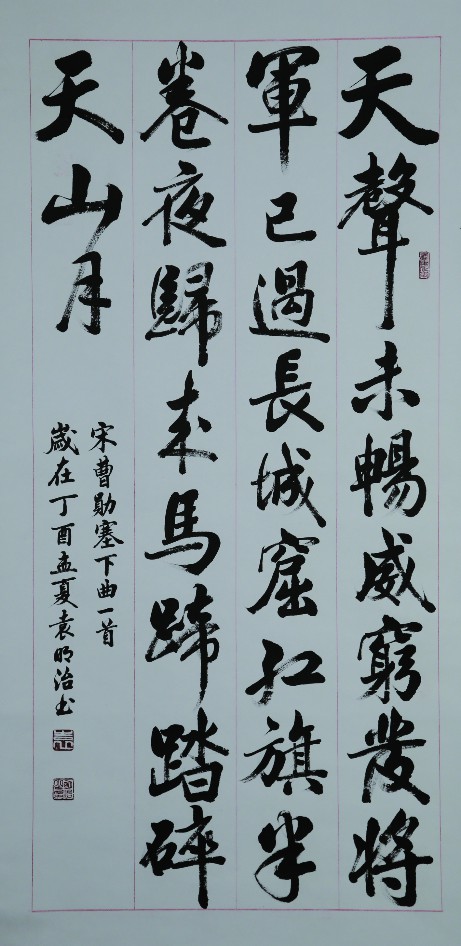 天聲未暢威窮發將
軍已過長城窟紅旗半
卷夜歸來馬蹄踏碎
天山月
宋曹勛塞下曲一首
歲在丁酉孟夏袁明治书